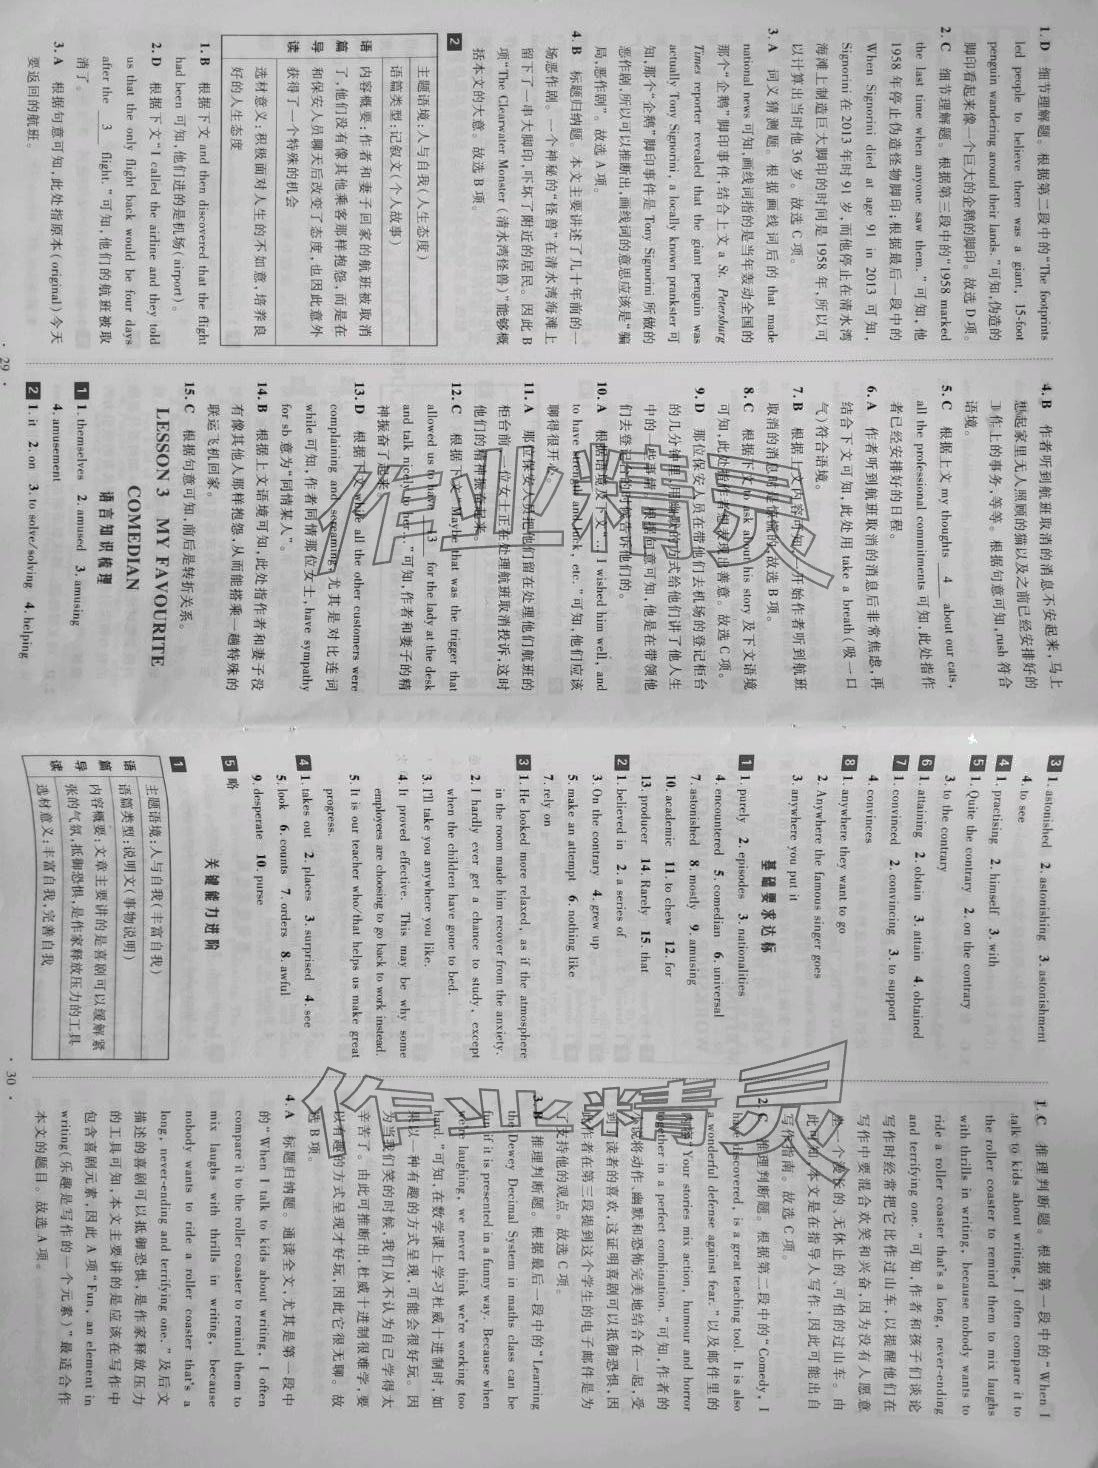 1. D 细节理解题。根据第二段中的“The footprints
led people to believe there was a giant, 15-foot
penguin wandering around their lands.”可知,伪造的
脚印看起来像一个巨大的企鹅的脚印。故选 D 项。
2. C 细节理解题。根据第三段中的“1958 marked
the last time when anyone saw them.”可知,他
1958 年停止伪造怪物脚印;根据最后一段中的
When Signorini died at age 91 in 2013 可知,
Signorini 在 2013 年时 91 岁,而他停止在清水湾
海滩上制造巨大脚印的时间是 1958 年,所以可
以计算出当时他 36 岁。故选 C 项。
3. A 词义猜测题。根据画线词后的 that made
national news 可知,画线词指的是当年轰动全国的
那个“企鹅”脚印事件,结合上文 a St. Petersburg
Times reporter revealed that the giant penguin was
actually Tony Signorini, a locally known prankster 可
知,那个“企鹅”脚印事件是 Tony Signorini 所做的
恶作剧,所以可以推断出,画线词的意思应该是“骗
局,恶作剧”。故选 A 项。
4. B 标题归纳题。本文主要讲述了几十年前的一
场恶作剧。一个神秘的“怪兽”在清水湾海滩上
留下了一串大脚印,吓坏了附近的居民。因此 B
项“The Clearwater Monster (清水湾怪兽)”能够概
括本文的大意。故选 B 项。
2
语篇导读
主题语境:人与自我(人生态度)
语篇类型:记叙文(个人故事)
内容概要:作者和妻子回家的航班被取消
了,他们没有像其他乘客那样抱怨,而是在
和保安人员聊天后改变了态度,也因此意外
获得了一个特殊的机会
选材意义:积极面对人生的不如意,培养良
好的人生态度
1. B 根据下文 and then discovered that the flight
had been 可知,他们进的是机场(airport)。
2. D 根据下文“I called the airline and they told
us that the only flight back would be four days
after the 3 flight.”可知,他们的航班被取
消了。
3. A 根据句意可知,此处指原本(original)今天
要返回的航班。
· 29 ·
4. B 作者听到航班取消的消息不安起来,马上
想起家里无人照顾的猫以及之前已经安排好的
工作上的事务,等等。根据句意可知,rush 符合
语境。
5. C 根据上文 my thoughts 4 about our cats,
all the professional commitments 可知,此处指作
者已经安排好的日程。
6. A 作者听到航班取消的消息后非常焦虑,再
结合下文可知,此处用 take a breath(吸一口
气)符合语境。
7. B 根据上文内容可知,一开始作者听到航班
取消的消息时是惊慌的,故选 B 项。
8. C 根据下文 to ask about his story 及下文语境
可知,此处指作者想表现出善意。故选 C 项。
9. D 那位保安人员在带他们去机场的登记柜台
的几分钟里,用幽默的方式给他们讲了他人生
中的一些事情。根据句意可知,他是在带领他
们去登记台的时候告诉他们的。
10. A 根据语境及下文“… I wished him well, and
to have strength and luck, etc.”可知,他们应该
聊得很开心。
11. A 那位保安人员把他们留在处理他们航班的
柜台前,一位女士正在处理航班取消投诉,这时
他们的精神振奋起来。
12. C 根据下文“Maybe that was the trigger that
allowed us to have 13 for the lady at the desk
and talk nicely to her …”可知,作者和妻子的精
神振奋了起来。
13. D 根据下文 while all the other customers were
complaining and screaming,尤其是对比连词
while 可知,作者同情那位女士,have sympathy
for sb 意为“同情某人”。
14. B 根据上文语境可知,此处指作者和妻子没
有像其他人那样抱怨,从而能搭乘一趟特殊的
联运飞机回家。
15. C 根据句意可知,前后是转折关系。
LESSON 3 MY FAVOURITE
COMEDIAN
语言知识梳理
1 1. themselves 2. amused 3. amusing
4. amusement
2 1. it 2. on 3. to solve/solving 4. helping
3 1. astonished 2. astonishing 3. astonishment
4. to see
4 1. practising 2. himself 3. with
5 1. Quite the contrary 2. on the contrary
3. to the contrary
6 1. attaining 2. obtain 3. attain 4. obtained
7 1. convinced 2. convincing 3. to support
4. convinces
8 1. anywhere they want to go
2. Anywhere the famous singer goes
3. anywhere you put it
基础要求达标
1 1. purely 2. episodes 3. nationalities
4. encountered 5. comedian 6. universal
7. astonished 8. mostly 9. amusing
10. academic 11. to chew 12. for
13. producer 14. Rarely 15. that
2 1. believed in 2. a series of
3. On the contrary 4. grew up
5. make an attempt 6. nothing like
7. rely on
3 1. He looked more relaxed, as if the atmosphere
in the room made him recover from the anxiety.
2. I hardly ever get a chance to study, except
when the children have gone to bed.
3. I'll take you anywhere you like.
4. It proved effective. This may be why some
employees are choosing to go back to work instead.
5. It is our teacher who/that helps us make great
progress.
4 1. takes out 2. places 3. surprised 4. see
5. look 6. counts 7. orders 8. awful
9. desperate 10. purse
5 略
关键能力进阶
1
语篇导读
主题语境:人与自我(丰富自我)
语篇类型:说明文(事物说明)
内容概要:文章主要讲的是喜剧可以缓解紧
张的气氛,抵御恐惧,是作家释放压力的工具
选材意义:丰富自我,完善自我
· 30 ·
1. C 推理判断题。根据第一段中的“When I
talk to kids about writing, I often compare it to
the roller coaster to remind them to mix laughs
with thrills in writing, because nobody wants to
ride a roller coaster that's a long, never-ending
and terrifying one.”可知,作者和孩子们谈论
写作时经常把它比作过山车,以提醒他们在
写作中要混合欢笑和兴奋,因为没有人愿意
坐一个漫长的、无休止的、可怕的过山车。由
此可知,本文是在指导人写作,因此可能出自
写作指南。故选 C 项。
2. C 推理判断题。根据第二段中的“Comedy, I
have discovered, is a great teaching tool. It is also
a wonderful defense against fear.”以及邮件里的
内容“Your stories mix action, humour and horror
together in a perfect combination.”可知,作者的
小说将动作、幽默和恐怖完美地结合在一起,受
到了读者的喜欢,这证明喜剧可以抵御恐惧,因
此作者在第三段提到这个学生的电子邮件是为
了支持他的观点。故选 C 项。
3. B 推理判断题。根据最后一段中的“Learning
the Dewey Decimal System in maths class can be
fun if it is presented in a funny way. Because when
we're laughing, we never think we're working too
hard.”可知,在数学课上学习杜威十进制时,如
果以一种有趣的方式呈现,可能会很好玩。因
为当我们笑的时候,我们从不认为自己学得太
辛苦了。由此可推断出,杜威十进制很难学,要
以有趣的方式呈现才好玩,因此它很无聊。故
选 B 项。
4. A 标题归纳题。通读全文,尤其是第一段中
的“When I talk to kids about writing, I often
compare it to the roller coaster to remind them to
mix laughs with thrills in writing, because
nobody wants to ride a roller coaster that's a
long, never-ending and terrifying one.”及后文
描述的喜剧可以抵御恐惧,是作家释放压力
的工具可知,本文主要讲的是应该在写作中
包含喜剧元素,因此 A 项“Fun, an element in
writing(乐趣是写作的一个元素)”最适合作
本文的题目。故选 A 项。
作业精灵
作业精灵